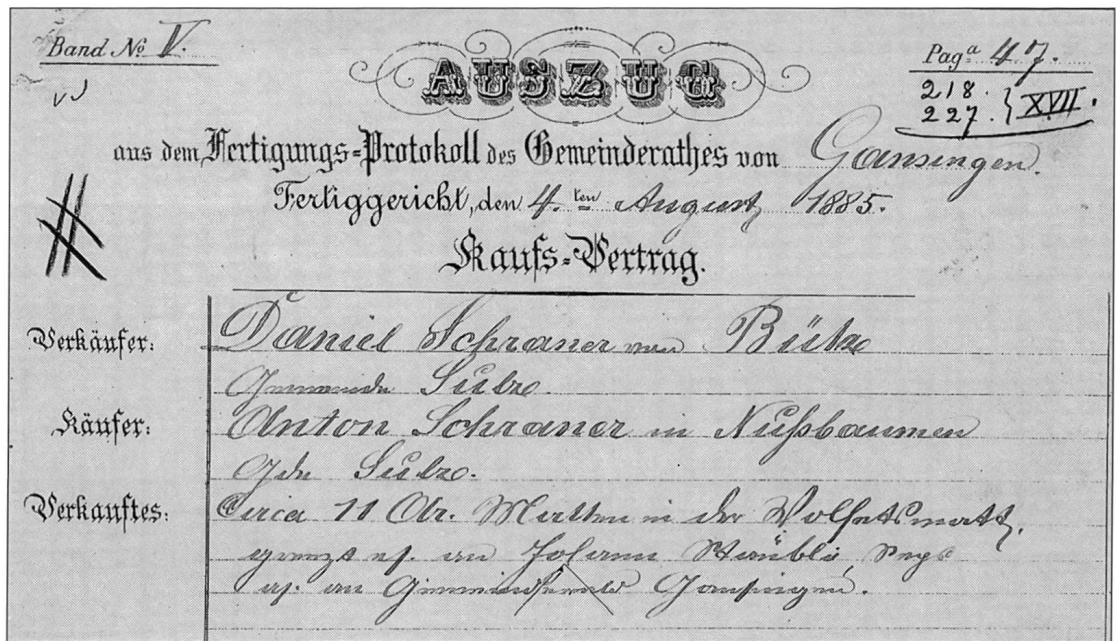 Band No V.
Paga 47.
218.
227. } XVII.
AUSZUG
aus dem Fertigungs-Protokoll des Gemeinderathes von Gansingen.
Fertiggericht, den 4.ten August 1885.
Kaufs-Vertrag.
Verkäufer: Daniel Schraner von Bütz
Gemeinde Sulz.
Käufer: Anton Schraner in Nußbaumen
Gde Sulz.
Verkauftes: Circa 11 Ar. Matten in der Wolfetsmatt,
grenzt es. an Johann Stäubli,
as. an Gansingen.